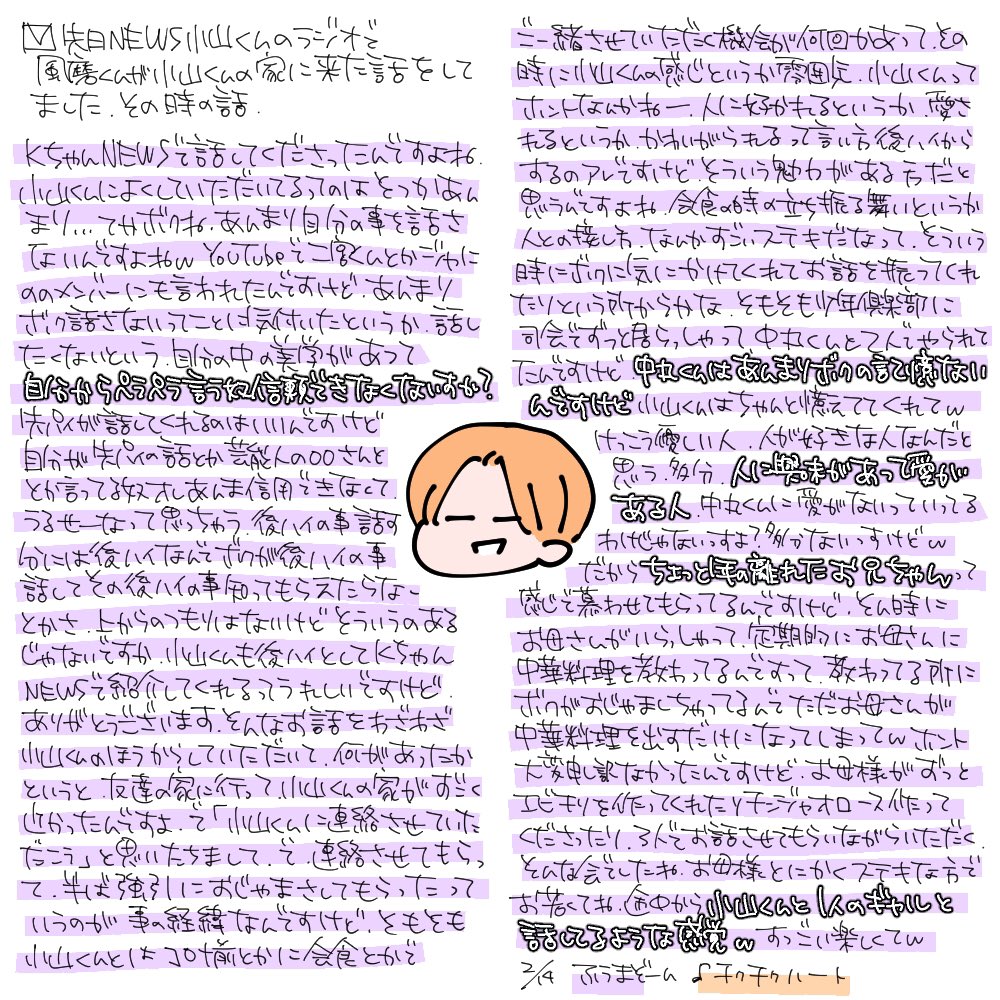 先日NEWS小山くんのラジオで
風磨くんが小山くんの家に来た話をして
ました。その時の話。
KちゃんNEWSで話してくださったんですよね。
小山くんによくしていただいてるってのはどっかあん
まり…てかボクね、あんまり自分の事を話さ
ないんですよねw YouTubeで二宮くんとかジャにの
のメンバーにも言われたんですけど、あんまり
ボク話さないってことに気付いたというか、話し
たくないという、自分の中の美学があって
自分からペラペラ言う奴信頼できなくないすか?
先パイが話してくれるのはいいんですけど
自分が先パイの話とか芸能人の〇〇さんと
とか言ってる奴オレあんま信用できなくて
うるせーなって思っちゃう。後ハイの事話す
分には後ハイなんでボクが後ハイの事
話してその後ハイの事知ってもらえたらなー
とかさ、上からのつもりはないけどそういうのある
じゃないですか、小山くんも後ハイとしてKちゃん
NEWSで紹介してくれるってうれしいですけど。
ありがとうございます。そんなお話をわざわざ
小山くんのほうからしていただいて、何があったか
というと、友達の家に行って、小山くんの家がすごく
近かったんですよ。で「小山くんに連絡させていた
だこう」と思いたちまして、で、連絡させてもらっ
て、半ば強引におじゃまさしてもらったって
いうのが事の経緯なんですけど、そもそも
小山くんとは コロナ前とかに会食とかで
ご一緒させていただく機会が何回かあって、その
時に小山くんの感じというか雰囲気、小山くんって
ホントなんかねー、人に好かれるというか、愛さ
れるというか、かわいがられるって言い方後ハイから
するのアレですけどそういう魅力がある方だと
思うんですよね。会食の時の立ち振る舞いというか
人との接し方、なんかすごいステキだなって、そういう
時にボクに気にかけてくれてお話を振ってくれ
たりという所からかな、そもそも少年倶楽部に
司会でずっと居らっしゃって中丸くんと2人でやられて
たんですけど、中丸くんはあんまりボクの記憶ない
んですけど 小山くんはちゃんと憶えててくれてw
けっこう優しい人、人が好きな人なんだと
思う、多分、人に興味があって愛が
ある人 中丸くんに愛がないっていってる
わけじゃないっすよ?多分ないっすけどw
だからちょっと年の離れたお兄ちゃんって
感じで慕わせてもらってるんですけど、その時に
お母さんがいらっしゃって、定期的にお母さんに
中華料理を教わってるんですって、教わってる所に
ボクがおじゃましちゃってるんで ただお母さんが
中華料理を出すだけになってしまってw ホント
大変申し訳なかったんですけど、お母様がずっと
エビチリを作ってくれたりチンジャオロース作って
くださったり、3人でお話させてもらいながらいただく、
そんな会でしたね。お母様とにかくステキな方で
お若くてね、途中から小山くんと1人のギャルと
話してるような感覚w すっごい楽しくてw
2/14 ふうまどーん ♪チクチクハート